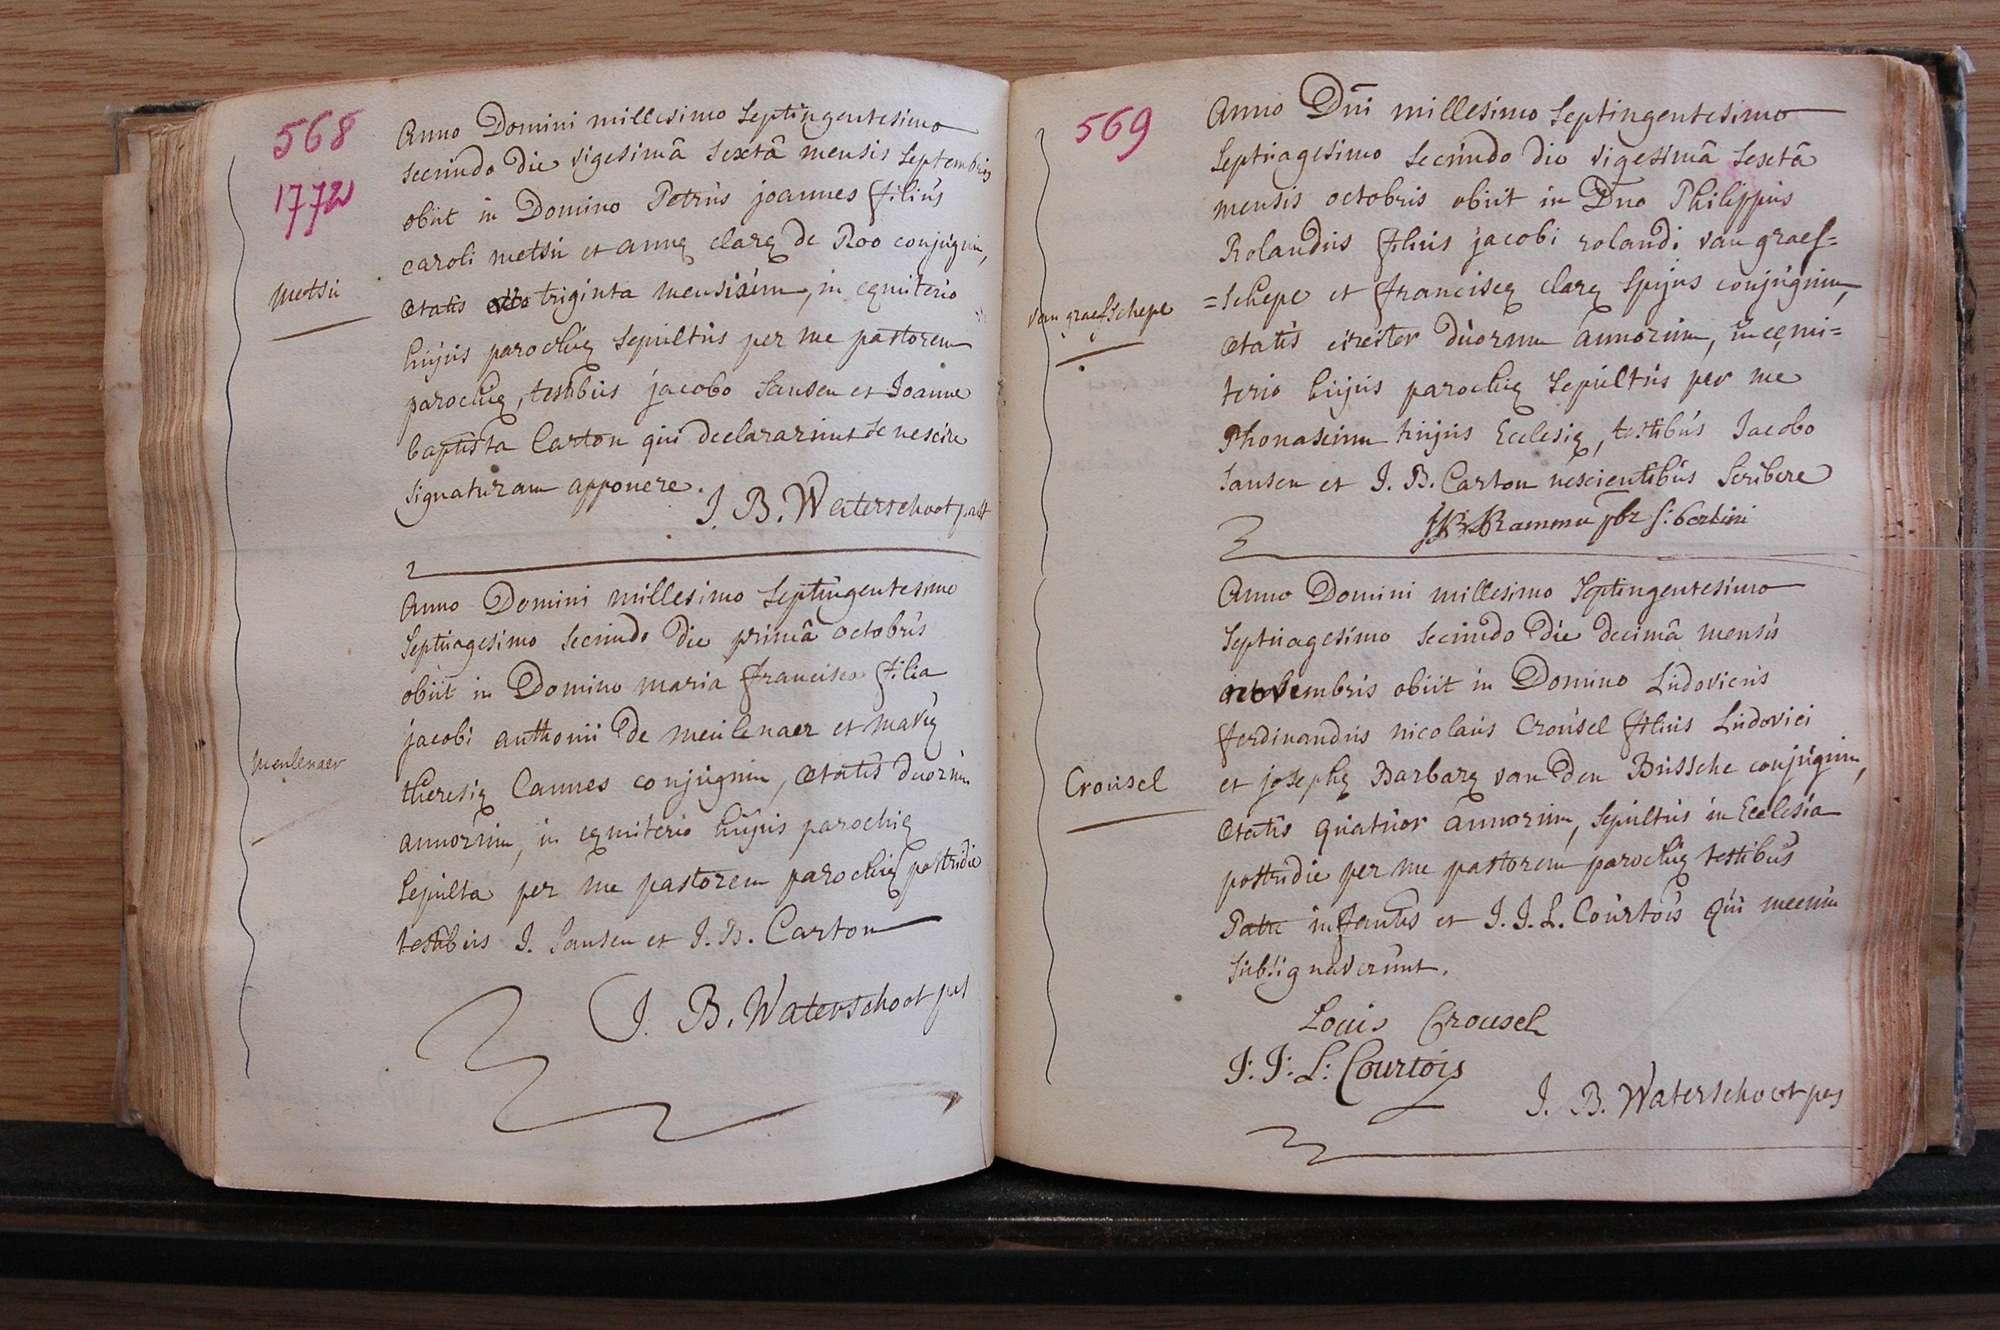 568
1772
Anno Domini millesimo Septingentesimo
secundo die vigesimâ sextâ mensis septembris
obiit in Domino Petrus joannes filius
caroli metsu et annę clarę de Roo conjugum,
Metsu
ætatis triginta mensium, in cęmiterio
hujus parochię sepultus per me pastorem
parochię, testibus jacobo Sansen et Joanne
baptista Carton qui declararunt se nescire
signaturam apponere.
J. B. Waterschoot past
Anno Domini millesimo Septingentesimo
septuagesimo secundo die primâ octobris
obiit in Domino maria francisca filia
jacobi anthonii de meulenaer et marię
Meulenaer
theresię Cannes conjugum, ætatis duorum
annorum, in cęmiterio hujus parochię
sepulta per me pastorem parochię postridie
testibus J. Sansen et J. B. Carton
J. B. Waterschoot pas
569
Anno Dñi millesimo Septingentesimo
Septuagesimo secundo die vigesimâ sextâ
mensis octobris obiit in Dno Philippus
Rolandus filius jacobi rolandi van graef=
van graefschepe
=schepe et franciscę clarę Spijns conjugum,
ætatis circiter duorum annorum, in cęmi=
terio hujus parochię sepultus per me
Phonascum hujus Ecclesię, testibus Jacobo
Sansen et J. B. Carton nescientibus scribere
pbr s: bertini
Anno Domini millesimo Septingentesimo
Septuagesimo secundo die decimâ mensis
novembris obiit in Domino Ludovicus
ferdinandus nicolaus Crousel filius Ludovici
Crousel
et josephę Barbarę van den Bussche conjugum,
ætatis quatuor annorum, sepultus in Ecclesia
postridie per me pastorem parochię testibus
Patre infantis et J. J. L. Courtois qui mecum
subsignaverunt.
Louis Crousel
J: J: L: Courtois
J. B. Waterschoot pas